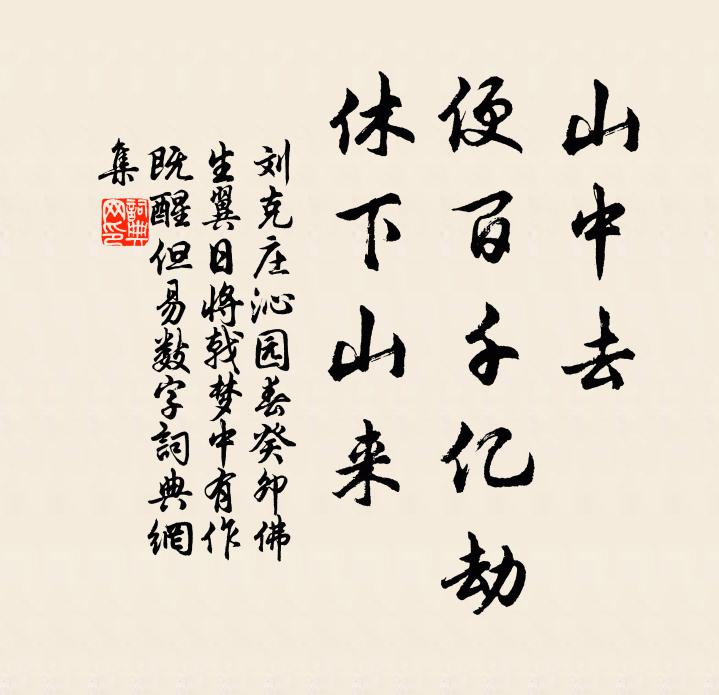 山中去
便百千亿劫
休下山来
刘克庄沁园春癸卯佛
生翼日将戟梦中有作
既醒但易数字詞典網
集
詞典
网印